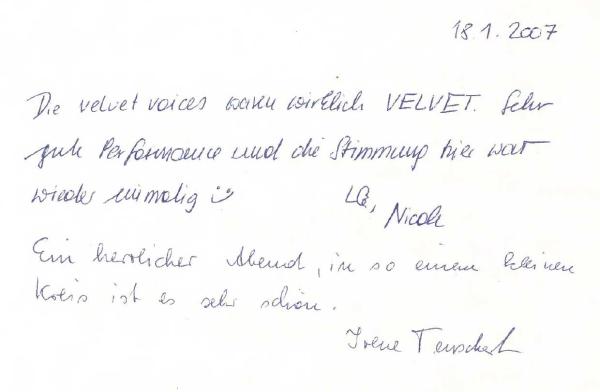 18.1.2007
Die velvet voices waren wirklich VELVET. Sehr
gute Performance und die Stimmung hier war
wieder einmalig :)
LG, Nicole
Ein herrlicher Abend, in so einem kleinen
Kreis ist es sehr schön.
Irene